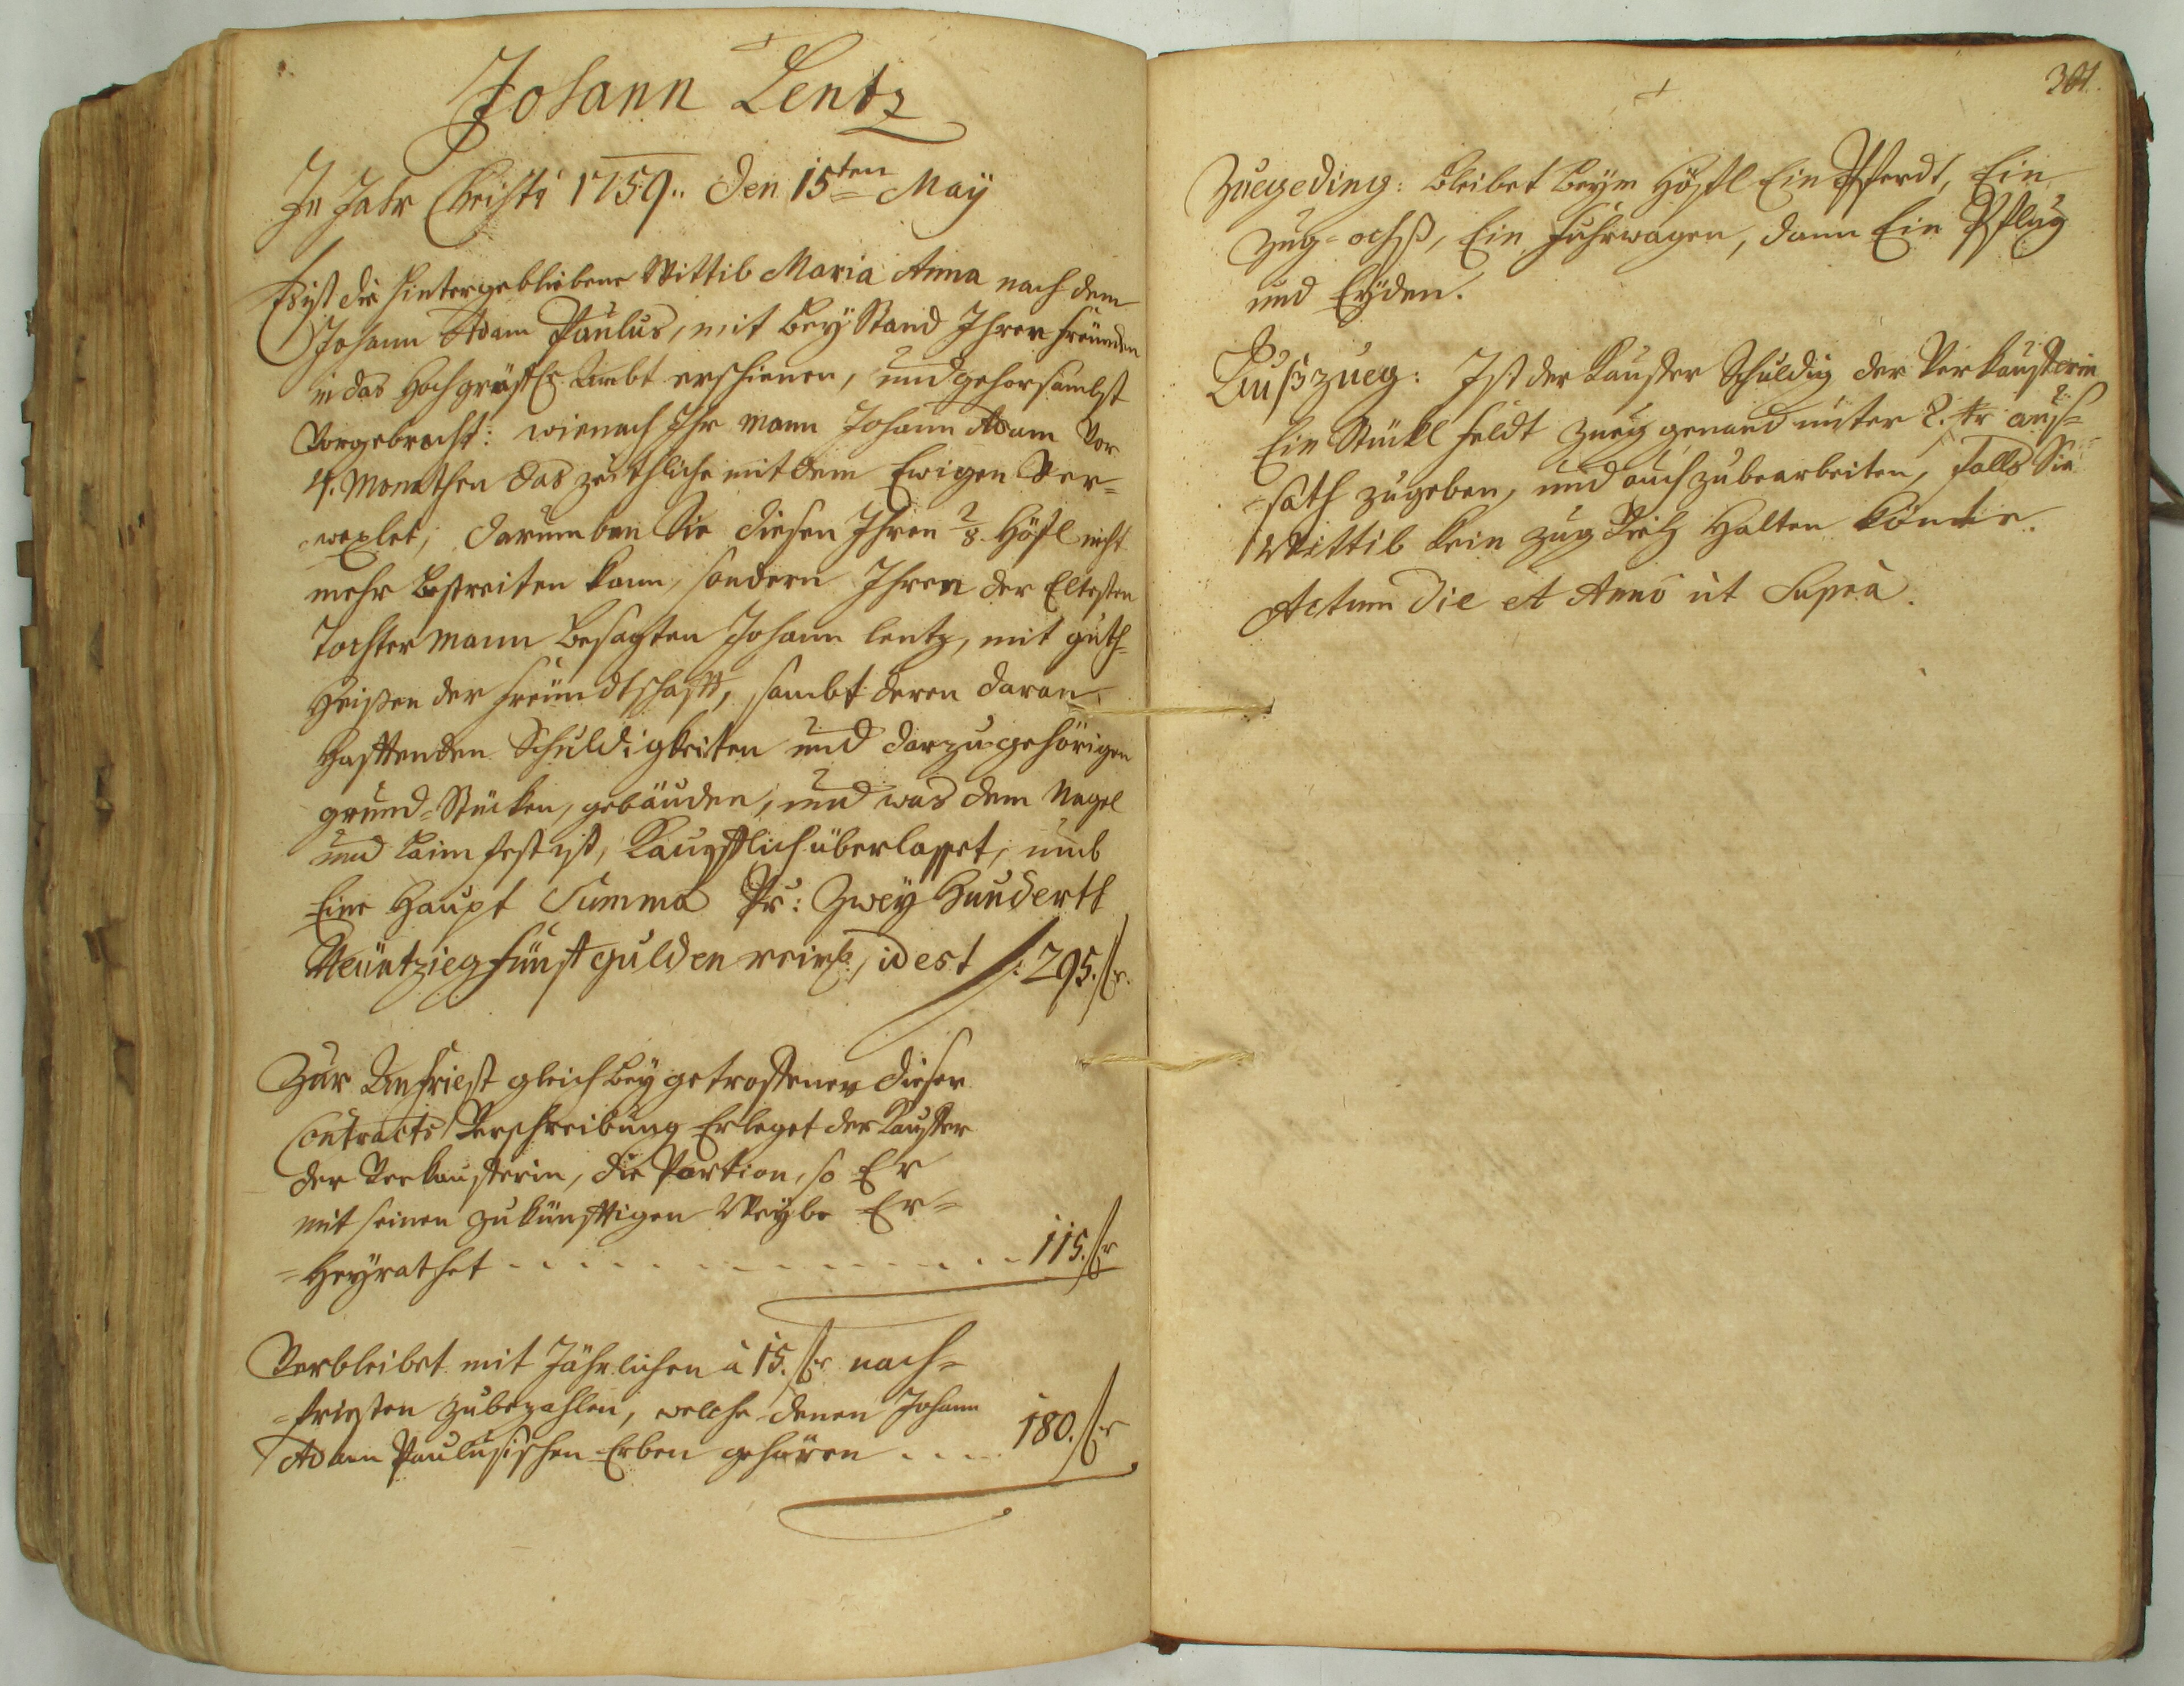 Johann Lentz
In Jahr Christi 1759.. den 15ten May
Ist die hintergebliebene Wittib Maria Anna nach dem
Johann Adam Paulus, mit bey Stand Ihren freünden
in das Hochgräfl: Ambt erschienen, und gehorsambst
Vorgebracht: wienach Ihr Mann Johann Adam Vor
4. Monathen das zeithliche mit dem Ewigen Ver=
wexlet, darumben Sie diesen Ihren 2/8. Höfl nicht
mehr bestreiten kann, sondern Ihren der Eltesten
Tochter Mann besagten Johann lentz, mit guth=
Heißen der freündtschafft, sambt deren daran
Hafftenden Schuldigkeiten und darzugehörigen
grund=Stücken, gebäuden, und was dem Nagel
und Laim fest ist, Kauffllich überlasset, umb
Eine Haupt Summa Pr: Zwey Hunderth
Neüntzieg fünff gulden reinl:, id est /: 295. fr.
Zur Anfriest gleich bey getroffener dieser
Contracts Verschreibung Erleget der Kauffer
der Verkaufferin, die Portion, so Er
mit seinen zukünfftigen Weybe Er=
=Heyrathet . . . . . . . . . . . . 115. fr
Verbleibet mit Jährlichen à 15. fr nach=
=friesten zubezahlen, welche denen Johann
Adam Paulusischen Erben gehören . . . . 180. fr
301.
Zuegeding: bleibet beym Höffl Ein Pferdt, Ein
Zug=ochß, Ein fuhrwagen, dann Ein Pflug
und Eyden.
Außzueg: Ist der Kauffer Schuldig der Verkaufferin
Ein Stückl feldt Zueg genand unter 2. tr auß=
=sath zugeben, und auch zubearbeiten, falls Sie
Wittib kein Zug Vieh Halten könnte.
Actum die et Anno ut Supra.